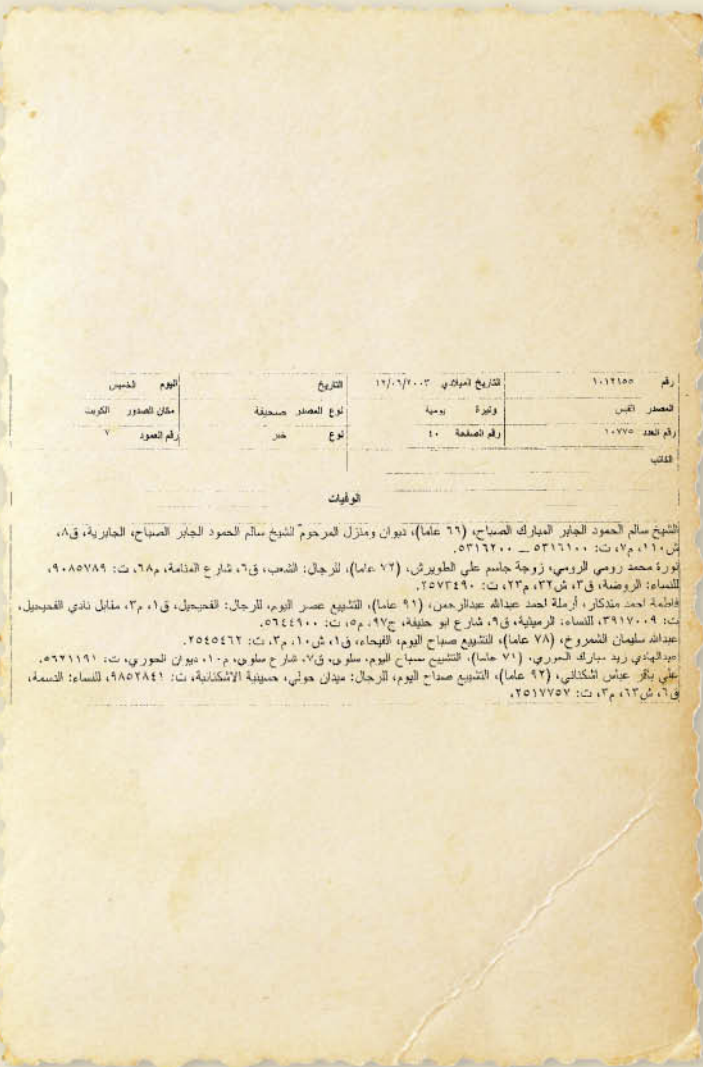 رقم ١٠١٢١٥٥ التاريخ الميلادي ١٢/٠٦/٢٠٠٣ التاريخ اليوم الخميس
المصدر القبس وتيرة يومية نوع المصدر صحيفة مكان الصدور الكويت
رقم العدد ١٠٧٧٥ رقم الصفحة ٤٠ نوع خبر رقم العمود ٧
الكاتب
الوفيات
الشيخ سالم الحمود الجابر المبارك الصباح، (٦٦ عاما)، ديوان ومنزل المرحوم الشيخ سالم الحمود الجابر الصباح، الجابرية، ق٨،
ش١١٠، م٧، ت: ٥٣١٦١٠٠ ــ ٥٣١٦٢٠٠.
نورة محمد رومي الرومي، زوجة جاسم علي الطويرش، (٧٢ عاما)، للرجال: الشعب، ق٦، شارع المنامة، م٦٨، ت: ٩٠٨٥٧٨٩،
للنساء: الروضة، ق٣، ش٣٢، م٢٣، ت: ٢٥٧٣٤٩٠.
فاطمة احمد مندكار، أرملة احمد عبدالله عبدالرحمن، (٩١ عاما)، التشييع عصر اليوم، للرجال: الفحيحيل، ق١، م٣، مقابل نادي الفحيحيل،
ت: ٣٩١٧٠٠٩، النساء: الرميثية، ق٩، شارع ابو حنيفة، ج٩٧، م٥، ت: ٥٦٤٤٩٠٠.
عبدالله سليمان الشمروخ، (٧٨ عاما)، التشييع صباح اليوم، الفيحاء، ق١، ش١٠، م٣، ت: ٢٥٤٥٤٦٢.
عبدالهادي زيد مبارك الحوري، (٧١ عاما)، التشييع صباح اليوم، سلوى، ق٧، شارع سلوى، م١٠، ديوان الحوري، ت: ٥٦٢١١٩١.
علي باقر عباس اشكناني، (٩٢ عاما)، التشييع صباح اليوم، للرجال: ميدان حولي، حسينية الاشكنانية، ت: ٩٨٥٢٨٤١، للنساء: الدسمة،
ق٦، ش٦٣، م٣، ت: ٢٥١٧٧٥٧.